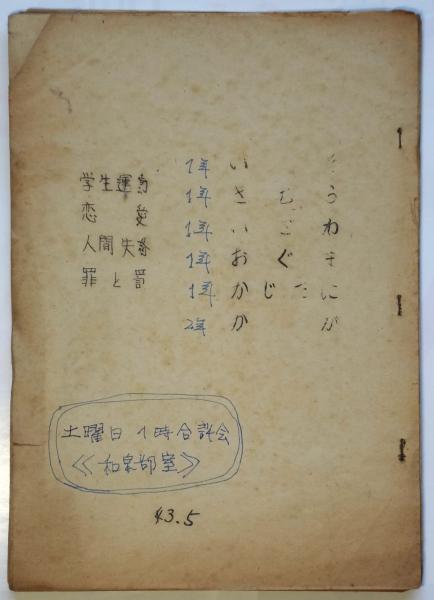 学生運動
恋愛
人間失格
罪と罰
1年 い
1年 さ う
1年 い ご わ
1年 お ぐ
1年 か じ た に
2年 か が
土曜日 1時合評会
《和泉部室》
43.5